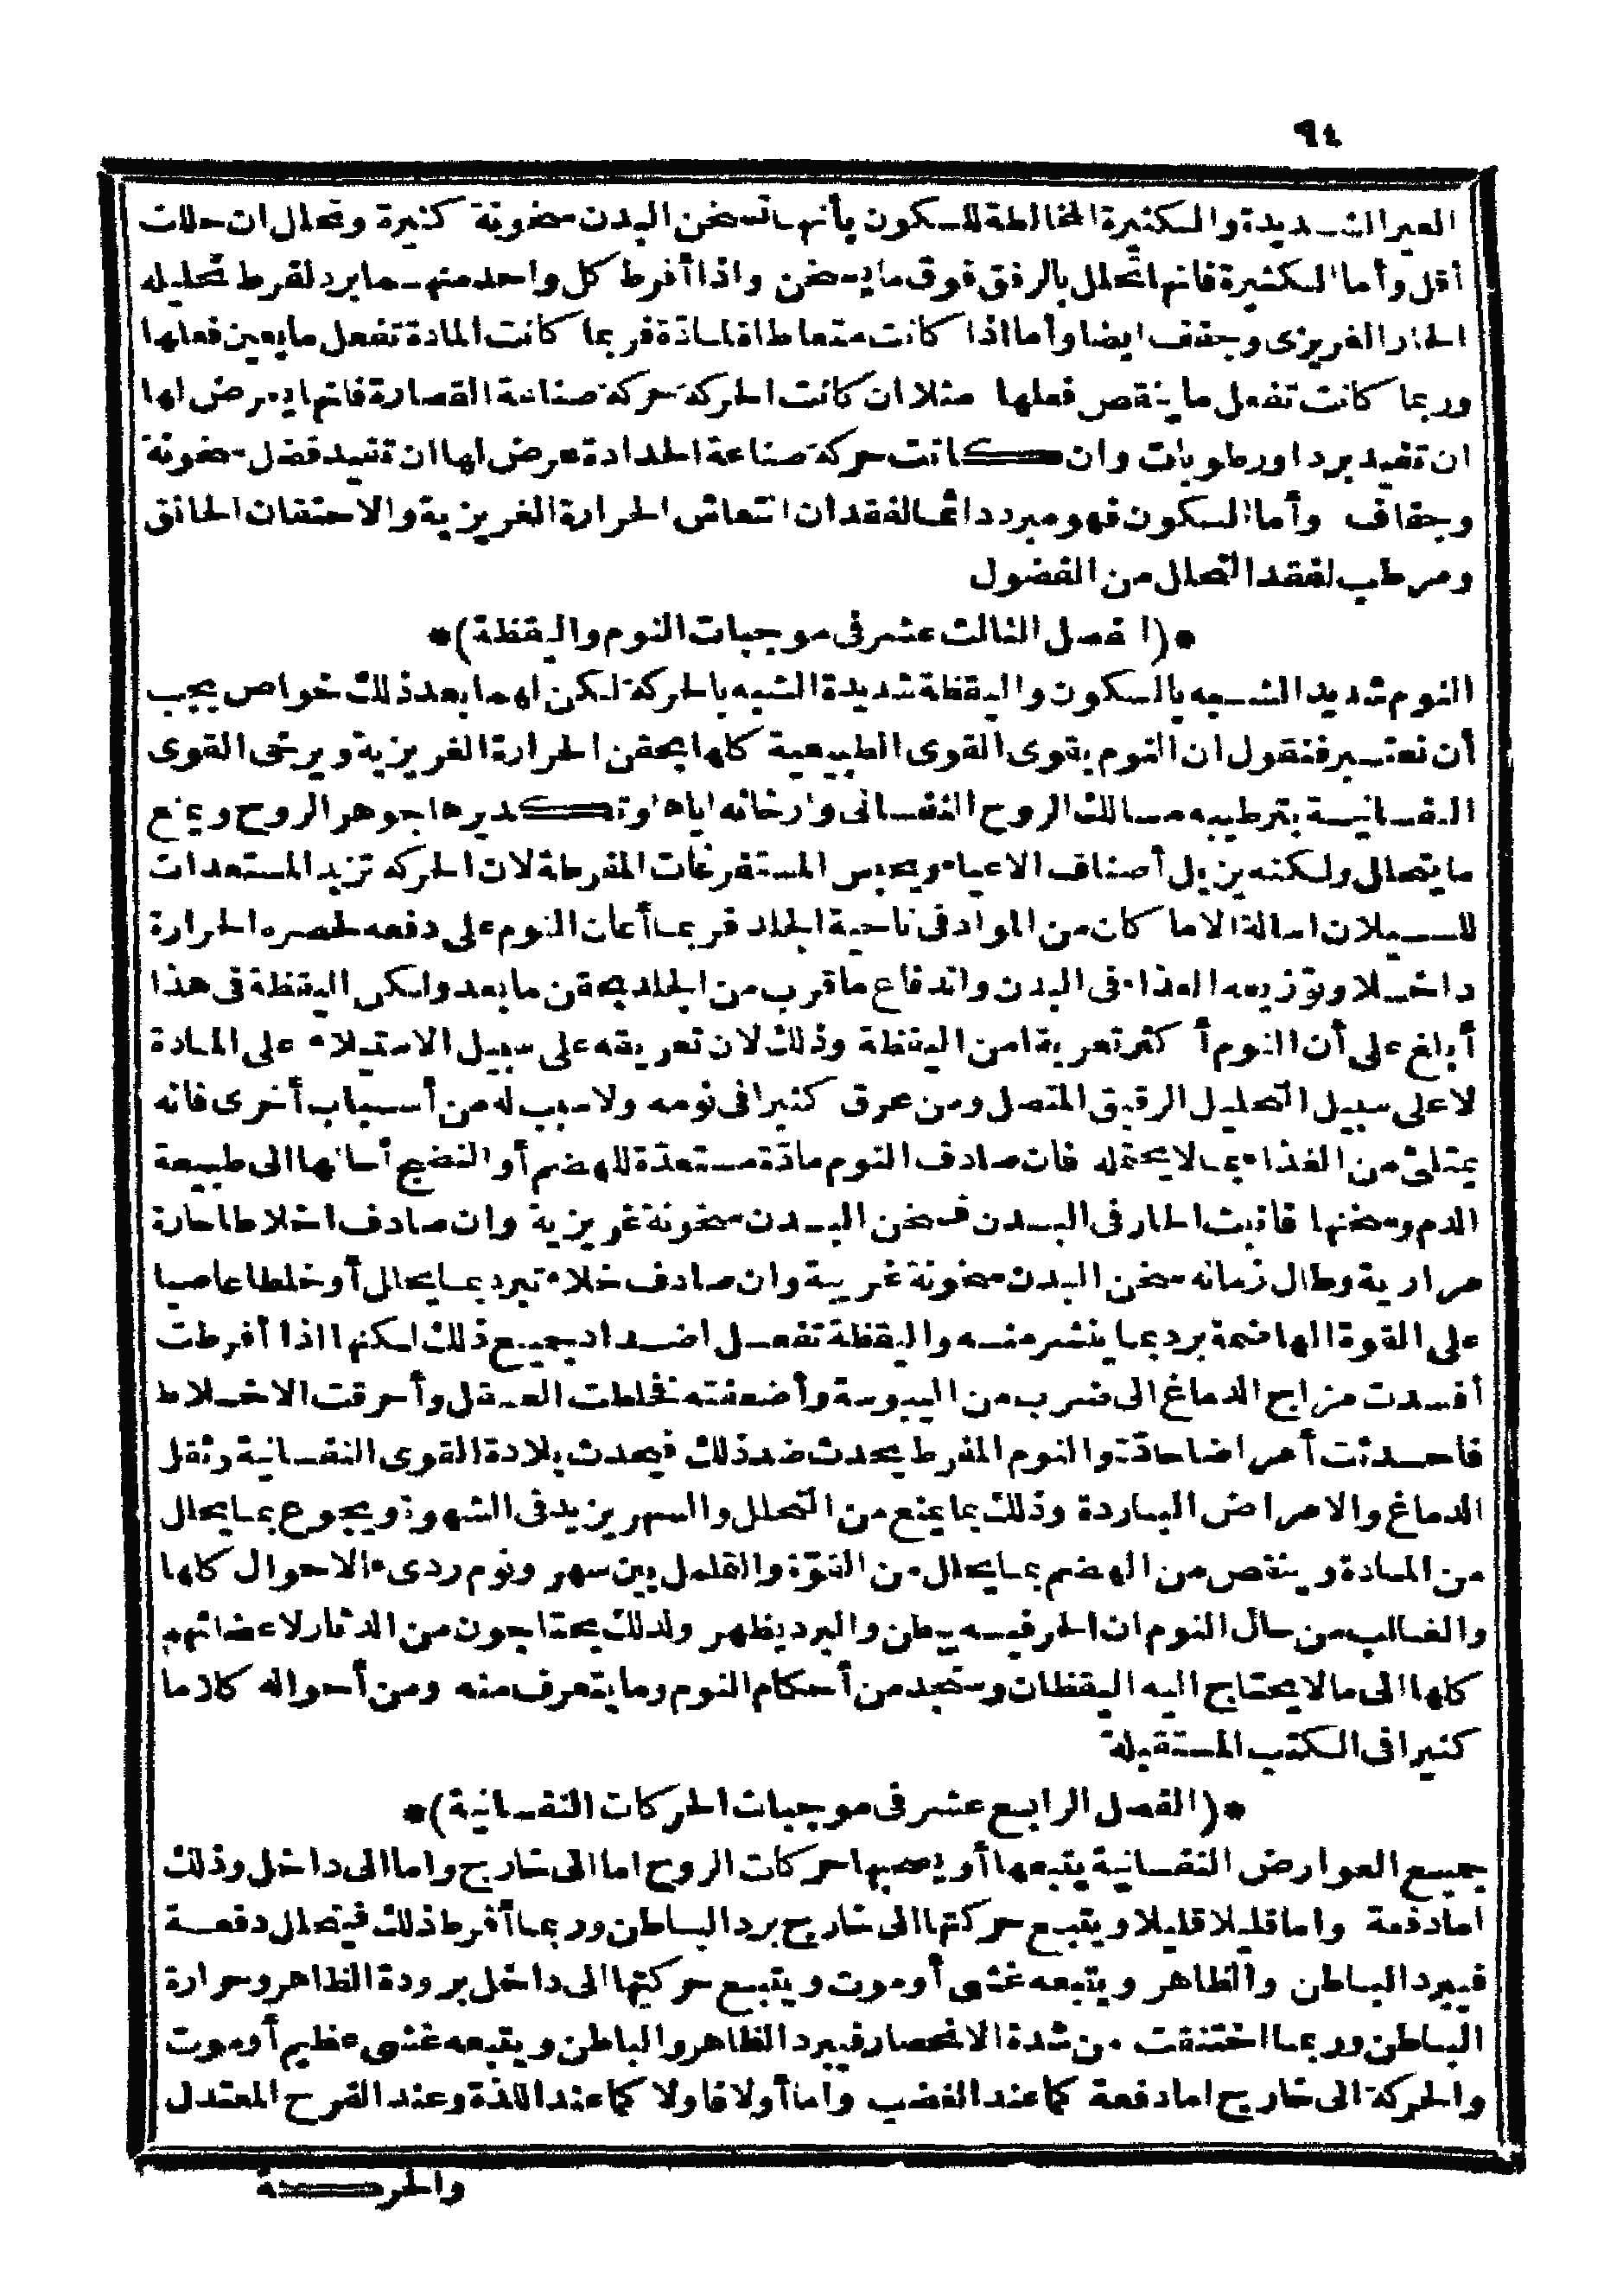 ٩٤
الغير الشديدة والكثيرة المخالطة للسكون بأنها تسخن البدن سخونة كثيرة وتحلل ان حللت
أقل وأما الكثيرة فانها تحلل بالرفق فوق ما يسخن واذا أفرط كل واحد منهما برد لفرط تحليله
الحار الغريزى وجفف ايضا وأما اذا كانت متعاطاة لمادّة فربما كانت المادة تفعل ما يعين فعلها
وربما كانت تفعل ما ينقص فعلها مثلا ان كانت الحركة حركة صناعة القصارة فانها يعرض لها
ان تفيد بردا ورطوبات وان كانت حركة صناعة الحدادة عرض لها ان تفيد فضل سخونة
وجفاف وأما السكون فهو مبرد دائما لفقدان انتعاش الحرارة الغريزية والاحتقان الخانق
ومرطب لفقد التحلل من الفضول
*(الفصل الثالث عشر فى موجبات النوم واليقظة)*
النوم شديد الشبه بالسكون واليقظة شديدة الشبه بالحركة لكن لهما بعد ذلك خواص يجب
أن نعتبر فنقول ان النوم يقوى القوى الطبيعية كلها بحقن الحرارة الغريزية ويرخى القوى
النفسانية بترطيبه مسالك الروح النفسانى وارخائه اياها وتكديرها جوهر الروح ويمنع
ما يتحلل ولكنه يزيل أصناف الاعياء ويحبس المستفرغات المفرطة لان الحركة تزيد المستعدات
للسيلان اسالة الا ما كان من المواد فى ناحية الجلد فربما أعان النوم على دفعه لحصره الحرارة
داخلا وتوزيعه الغذاء فى البدن واندفاع ما قرب من الجلد بحقن ما بعد ولكن اليقظة فى هذا
أبلغ على أن النوم أكثر تعريقا من اليقظة وذلك لان تعريقه على سبيل الاستيلاء على المادة
لا على سبيل التحليل الرقيق المتصل ومن عرق كثيرا فى نومه ولا سبب له من أسباب أخرى فانه
يمتلئ من الغذاء بما لا يحتمله فان صادف النوم مادّة مستعدّة للهضم أو النضج أحالها الى طبيعة
الدم وسخنها فانبث الحار فى البدن فسخن البدن سخونة غريزية وان صادف اخلاطا حارة
مرارية وطال زمانه سخن البدن سخونة غريبة وان صادف خلاء تبرد بما يحلل أو خلطا عاصيا
على القوة الهاضمة برد بما ينشر منه واليقظة تفعل اضداد جميع ذلك لكنها اذا أفرطت
أفسدت مزاج الدماغ الى ضرب من اليبوسة وأضعفته فخلطت العقل وأحرقت الاخلاط
فاحدثت أمراضا حادّة والنوم المفرط يحدث ضد ذلك فيحدث بلادة القوى النفسانية وثقل
الدماغ والامراض الباردة وذلك بما يمنع من التحلل والسهر يزيد فى الشهوة ويجوع بما يحلل
من المادة وينقص من الهضم بما يحلل من القوّة والتململ بين سهر ونوم ردىء الاحوال كلها
والغالب من حال النوم ان الحر فيه يبطن والبرد يظهر ولذلك يحتاجون من الدثار لاعضائهم
كلها الى ما لا يحتاج اليه اليقظان وستجد من أحكام النوم وما يتعرف منه ومن أحواله كلاما
كثيرا فى الكتب المستقبلة
*(الفصل الرابع عشر فى موجبات الحركات النفسانية)*
جميع العوارض النفسانية يتبعها أو يصحبها حركات الروح اما الى خارج واما الى داخل وذلك
اما دفعة واما قليلا قليلا ويتبع حركتها الى خارج برد الباطن وربما أفرط ذلك فيتحلل دفعة
فيبرد الباطن والظاهر ويتبعه غشى أو موت ويتبع حركتها الى داخل برودة الظاهر وحرارة
الباطن وربما اختنقت من شدة الانحصار فيبرد الظاهر والباطن ويتبعه غشى عظيم أو موت
والحركة الى خارج اما دفعة كما عند الغضب واما أولا فاولا كما عند اللذة وعند الفرح المعتدل
والحركة